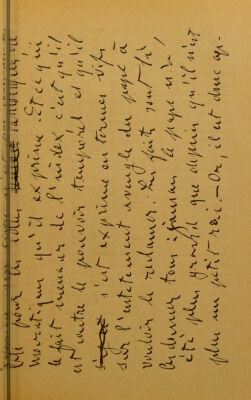 été pour les idées
mocratiques qu'il exprime. Et ce qui
le fait menacer de l'index c'est qu'il
est contre le pouvoir temporel et qu'il
s'est exprimé en termes vifs
sur l'entêtement aveugle du pape à
vouloir le réclamer. Les faits sont là
ou donner tous : jamais le pape n'a
été plus grand que depuis qu'il n'est
plus un petit roi. — Or, il est donc ap-